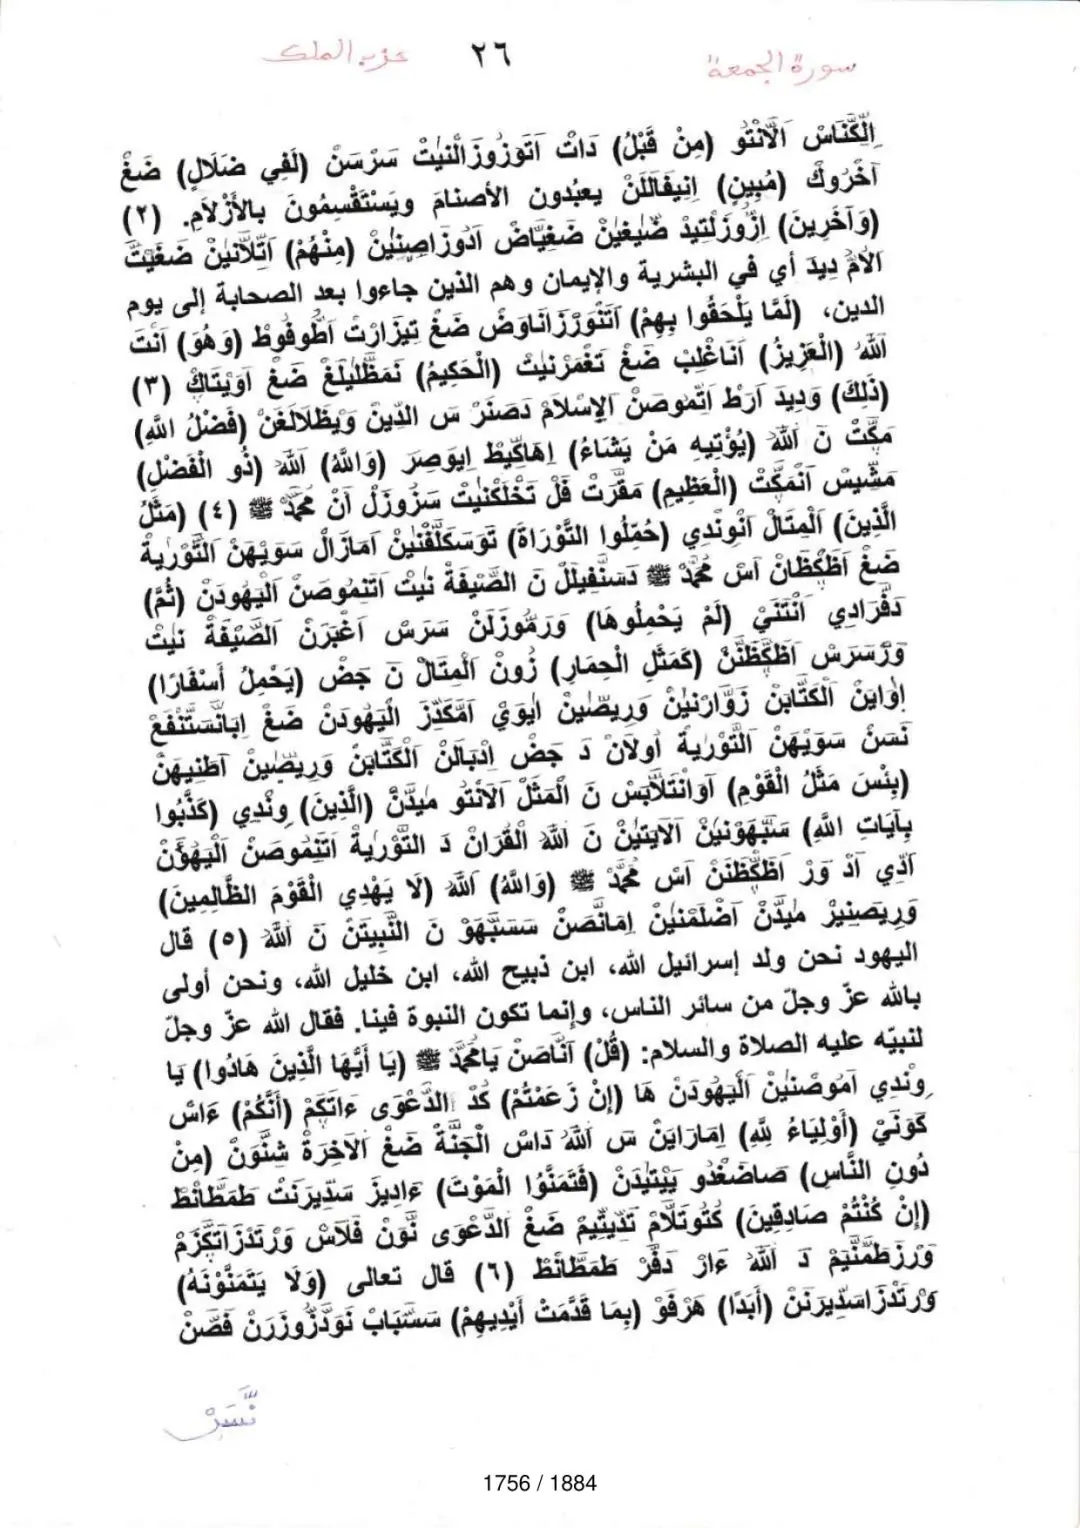 سورة الجمعة ٢٦ حزب الملك
اِلْكَّنَاسْ اَلَانْتُو (مِنْ قَبْلُ) دَاتْ اَتَوْزُوزَالْنِيْتْ سَرْسَنْ (لَفِي ضَلَالٍ) ضَغْ
اَخْرُوكْ (مُبِينٍ) اِنِيفَالَلَنْ يعبُدون الأصنامَ ويَسْتَقْسِمُونَ بالأَزْلَامِ. (٢)
(وَآخَرِينَ) اِزُّوزَلْتِيدْ ضَيْغِيْنْ ضَغِيَّاضْ اَدُوزَاصِنِيْنْ (مِنْهُمْ) اَتْلَّانِيْنْ ضَغِيْتْ
اَلَامْ دِيدَ أي في البشرية والإيمان وهم الذين جاءوا بعد الصحابة إلى يوم
الدين، (لَمَّا يَلْحَقُوا بِهِمْ) اَتْنَوْرَزَانَاوَضْ ضَغْ تِيزَارْتْ اَطُّوفُوطْ (وَهُوَ) اَنْتَ
اَللَّهُ (الْعَزِيزُ) اَنَاغْلِبْ ضَغْ تَغْمَرْنِيْتْ (الْحَكِيمُ) نَمَظْلِيلَغْ ضَغْ اَوِيتَاكْ (٣)
(ذَلِكَ) وَدِيدَ اَرَطْ اَتِّمُوصَنْ اَلِإسْلَامْ دَصَنَرْ سَ الدِّينْ وَيْظَلَالَغَنْ (فَضْلُ اللَّهِ)
مَكَّتْ نَ اَللَّهْ (يُؤْتِيهِ مَنْ يَشَاءُ) اِهَاكِيطْ اِيوَصِرَ (وَاللَّهُ) اَللَّهْ (ذُو الْفَضْلِ)
مَشِّيسْ اَنْمَكَّتْ (الْعَظِيمِ) مَقَّرَتْ فَلْ تَخْلَكْنِيْتْ سَزُوزَلْ اَنْ مُحَمَّدْ ﷺ (٤) (مَثَلُ
الَّذِينَ) اَلْمِتَالْ اَنْوِنْدِي (حُمِّلُوا التَّوْرَاةَ) تَوَسَكَلْفْنِيْنْ اَمَازَالْ سَوِيْهَنْ اَلتَّوْرَيةْ
ضَغْ اَظْكِظَانْ اَسْ مُحَمَّدْ ﷺ دَسَنْفِيلَلْ نَ الصِّيفَةْ نِيْتْ اَتِنْمُوصَنْ اَلْيَهُودَنْ (ثُمَّ)
دَفَّرَادِي اَنْتَنَيْ (لَمْ يَحْمِلُوهَا) وَرَمُّوزَلَنْ سَرَسْ اَغْبَرَنْ الصِّيفَةْ نِيْتْ
وَرْسَرَسْ اَظْكِظَنَنْ (كَمَثَلِ الْحِمَارِ) زُونْ اَلْمِتَالْ نَ جَضْ (يَحْمِلُ أَسْفَارًا)
اِوَايَنْ اَلْكَتَّابَنْ زَوَّارْنِيْنْ وَرِيصِّينْ اَيْوَيْ اَمَّكَدَزْ اَلْيَهُودَنْ ضَغْ اِبَانْسَتَنْفَعْ
نَسَنْ سَوِيْهَنْ اَلتَّوْرَيةْ أُولَانْ دَ جَضْ اِدْبَالَنْ اَلْكَتَّابَنْ وَرِيصِّينْ اَطْنِيهَنْ
(بِئْسَ مَثَلُ الْقَوْمِ) اَوَانْتَلَّابَسْ نَ اَلْمَثَلْ اَلَانْتُو مَيْدَنْ (الَّذِينَ) وِنْدِي (كَذَّبُوا
بِآيَاتِ اللَّهِ) سَنْبَهَوْنِيْنْ اَلَايَتِيْنْ نَ اَللَّهْ اَلْقُرَانْ دَ التَّوْرَيةْ اَتِنْمُوصَنْ اَلْيَهُوَنْ
اَدِّي اَدْ وَرْ اَظْكِظَنَنْ اَسْ مُحَمَّدْ ﷺ (وَاللَّهُ) اَللَّهْ (لَا يَهْدِي الْقَوْمَ الظَّالِمِينَ)
وَرِيصِنِيرْ مَيْدَنْ اَضْلَمْنِيْنْ اِمَانَّصَنْ سَسَبَّهَوْ نَ النَّبِيتَنْ نَ اَللَّهْ (٥) قال
اليهود نحن ولد إسرائيل الله، ابن ذبيح الله، ابن خليل الله، ونحن أولى
بالله عزّ وجلّ من سائر الناس، وإنما تكون النبوة فينا. فقال الله عزّ وجلّ
لنبيّه عليه الصلاة والسلام: (قُلْ) اَنَّاصَنْ يَامُحَمَّدْ ﷺ (يَا أَيُّهَا الَّذِينَ هَادُوا) يَا
وِنْدِي اَمُوصْنِيْنْ اَلْيَهُودَنْ هَا (إِنْ زَعَمْتُمْ) كُدْ الدَّعْوَى ءَاتَكَمْ (أَنَّكُمْ) ءَاسْ
كَوَنَيْ (أَوْلِيَاءُ لِلَّهِ) اِمَارَايَنْ سَ اَللَّهْ دَاسْ اَلْجَنَّةْ ضَغْ اَلَاخِرَةْ شِنَّوَنْ (مِنْ
دُونِ النَّاسِ) صَاضَغْدُو يَيْتِيدَنْ (فَتَمَنَّوُا الْمَوْتَ) ءَادِيزْ سَدِّيرَنَتْ طَمَطَّانْطْ
(إِنْ كُنْتُمْ صَادِقِينَ) كَتُوتَلَّامْ تَدِّيتِيمْ ضَغْ الدَّعْوَى نَّوَنْ فَلَاسْ وَرْتَدْزَاتَكَّزَمْ
وَرْزَطَمَّنْيَمْ دَ اَللَّهْ ءَارْ دَفَّرْ طَمَطَّانْطْ (٦) قال تعالى (وَلَا يَتَمَنَّوْنَهُ)
وَرْتَدْزَاسَدِّيرَنَنْ (أَبَدًا) هَرْفَوْ (بِمَا قَدَّمَتْ أَيْدِيهِمْ) سَسَّبَابْ نَوَدْزُوزَرَنْ فَصَّنْ
نَّسَنْ
1756 / 1884